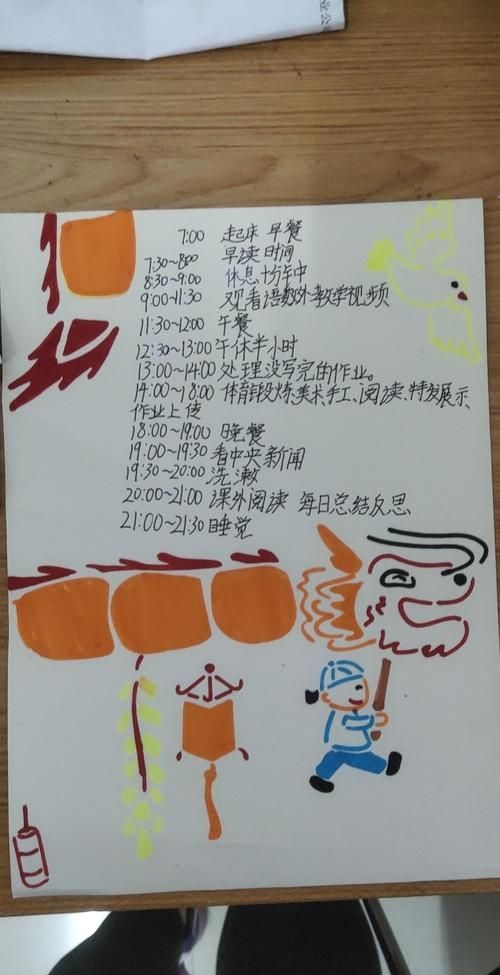 业公
7:00 起床 早餐
7:30~8:00 早读时间
8:30~9:00 休息十分钟
9:00~11:30 观看语数外教学视频
11:30~12:00 午餐
12:30~13:00 午休半小时
13:00~14:00 处理没写完的作业。
14:00~18:00 体育锻炼、美术、手工、阅读、特长展示、
作业上传
18:00~19:00 晚餐
19:00~19:30 看中央新闻
19:30~20:00 洗漱
20:00~21:00 课外阅读 每日总结反思
21:00~21:30 睡觉